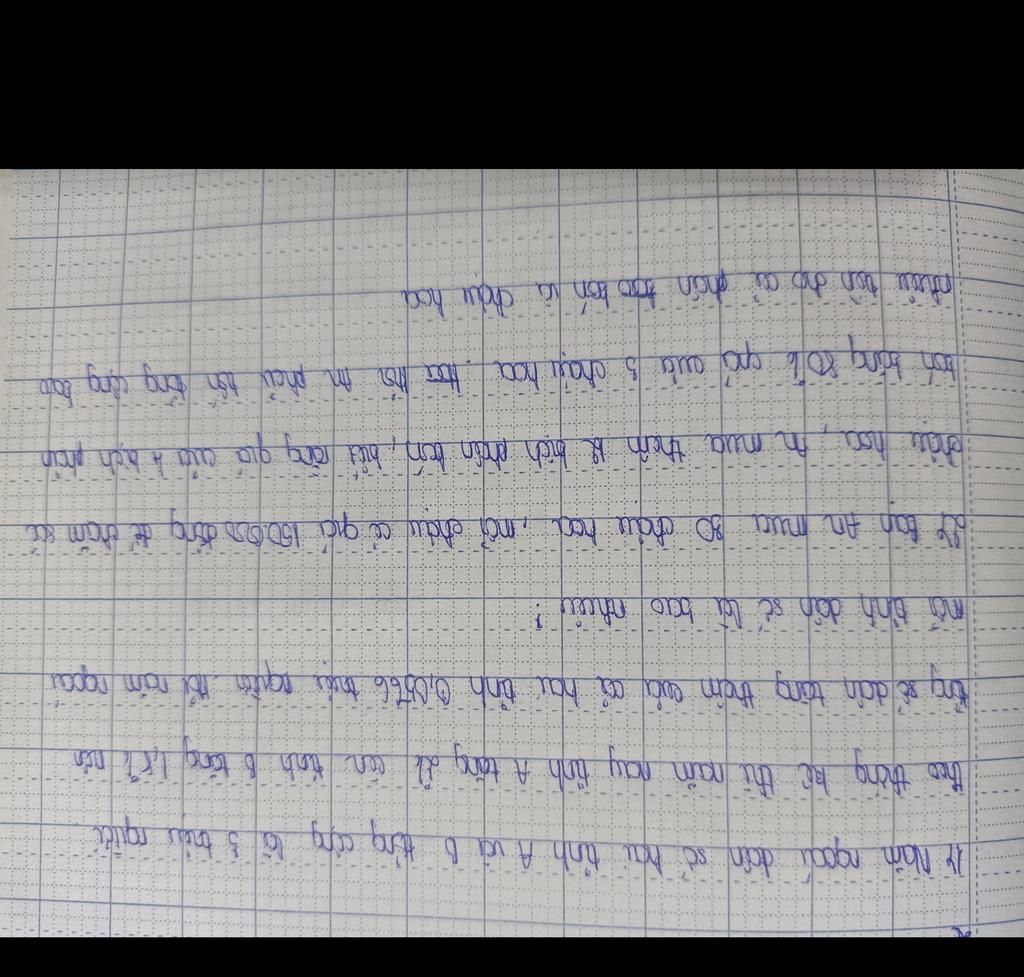 1/ Năm ngoái dân số hai tỉnh A và B tổng cộng là 3 triệu người
theo thống kê thì năm nay tỉnh A tăng 2% còn tỉnh B tăng 1,8% nên
tổng số dân tăng thêm của cả hai tỉnh 0,0566 triệu người. Hỏi năm ngoái
mỗi tỉnh dân số là bao nhiêu ?
2/ Bạn An mua 30 chậu hoa, mỗi chậu có giá 150.000 đồng để chăm sóc
chậu hoa, An mua thêm bịch phân bón, biết rằng giá của 1 bịch phân
bón bằng 80% giá của 3 chậu hoa. Hỏi An phải tốn tổng cộng bao
nhiêu tiền cho cả phân bón và chậu hoa